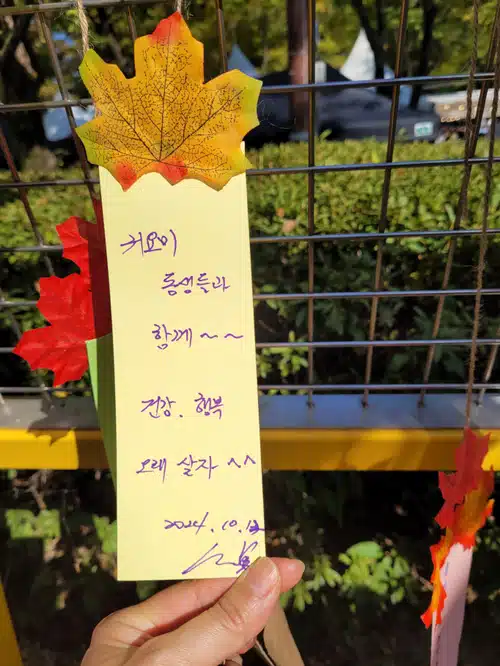 귀요미
동생들과
함께 ~ ~
건강. 행복
오래 살자 ^^
2024. 10. 12